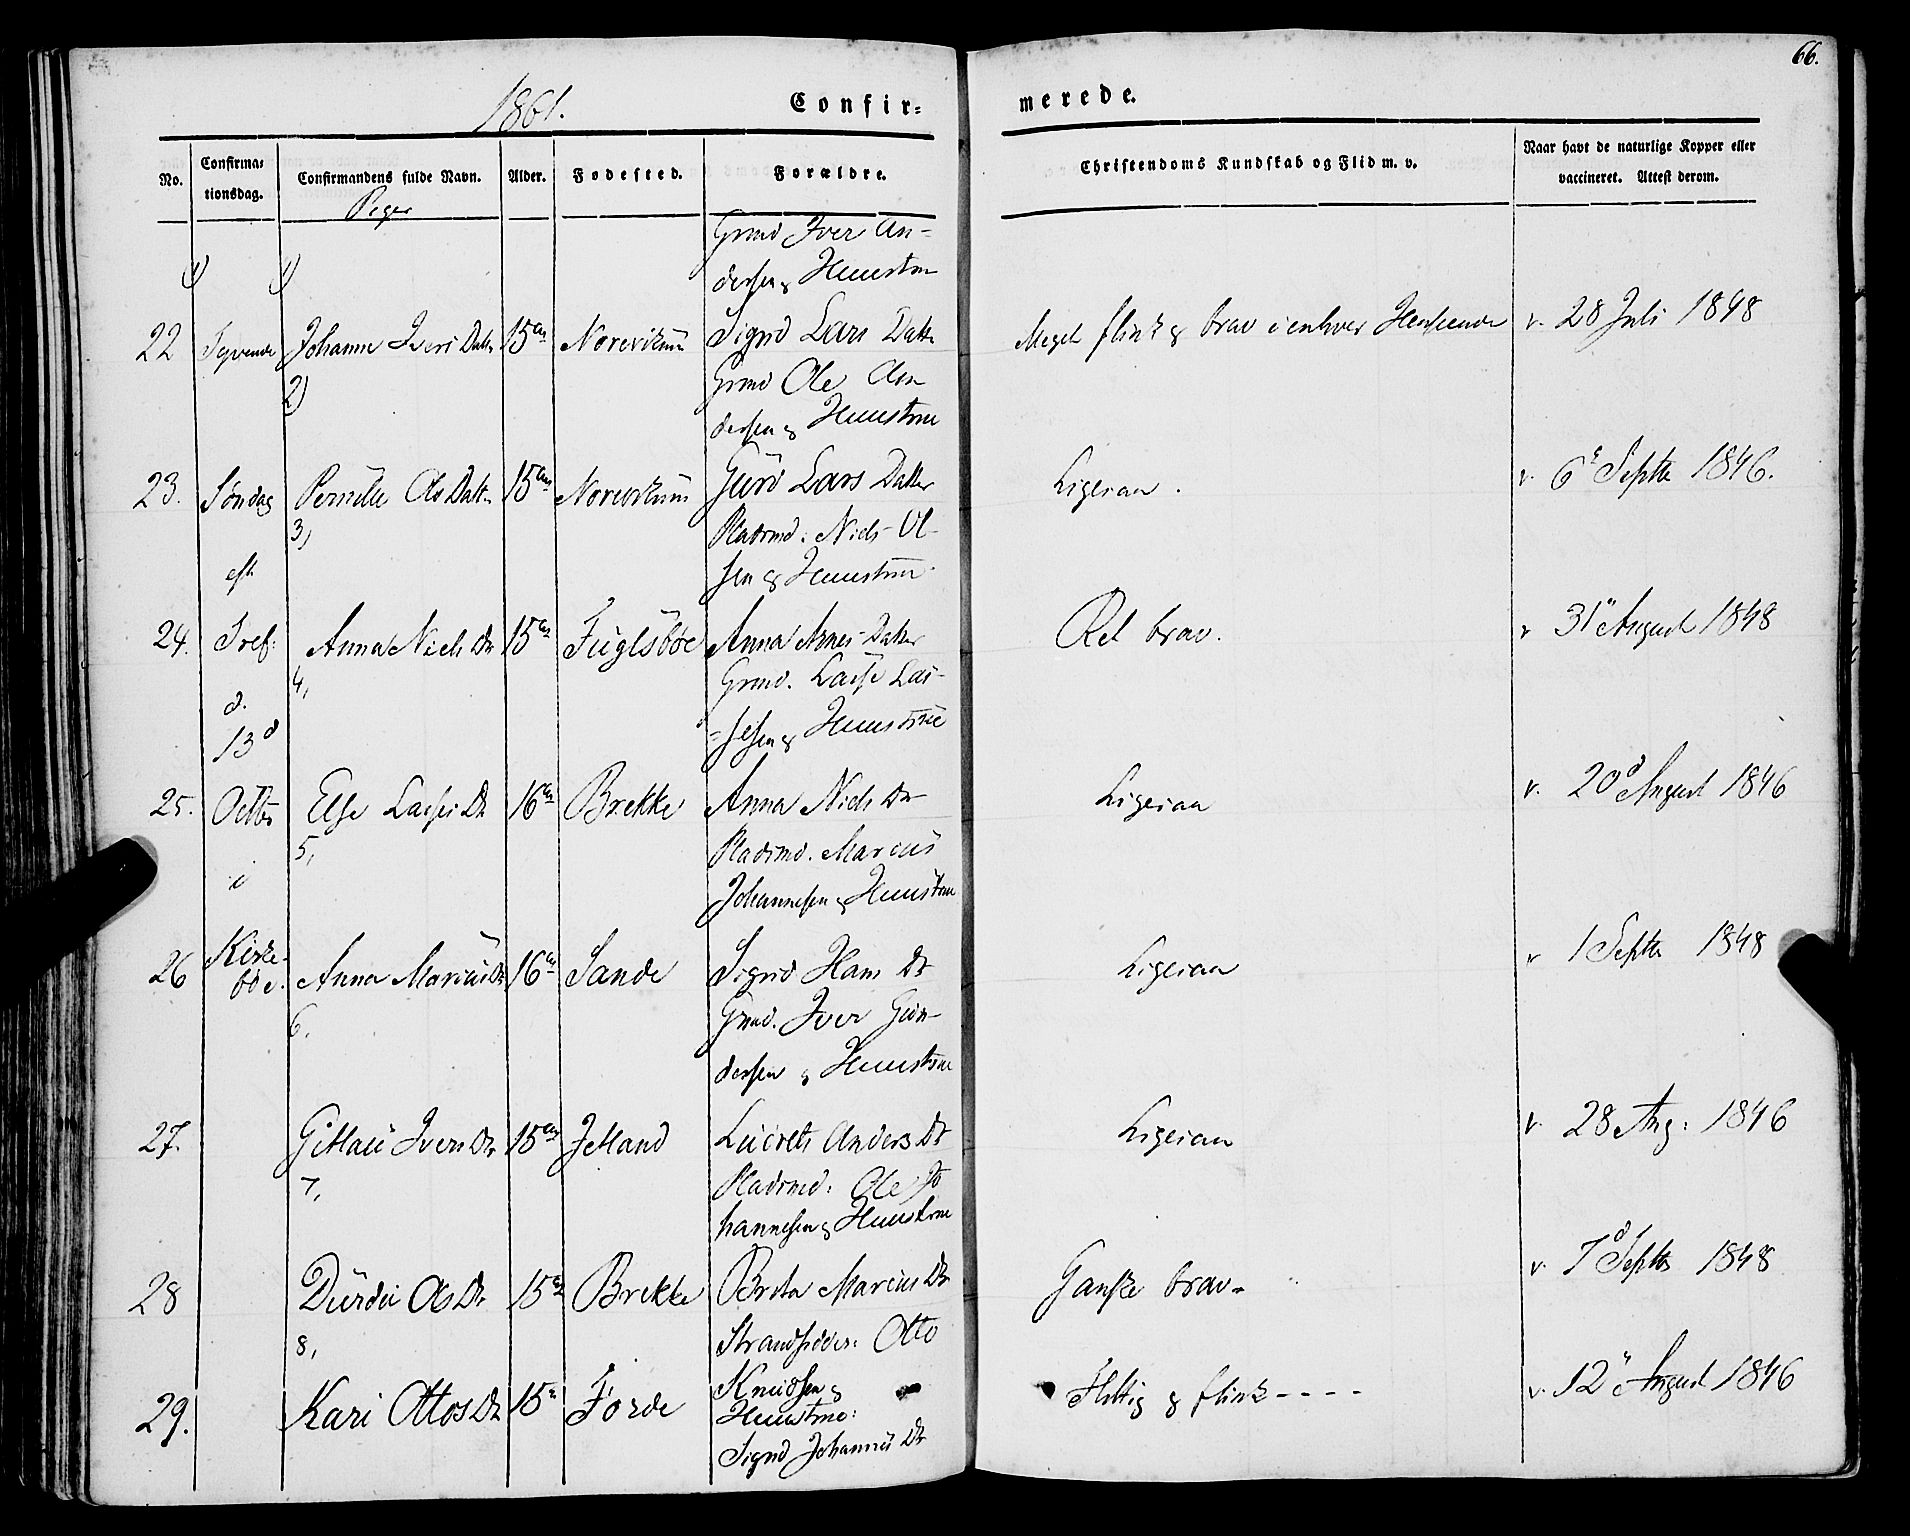 66.
1861.
Confir=
merede.
No.
Confirma=
tionsdag.
Confirmandens fulde Navn.
Piger
Alder.
Fodested.
Forældre.
Christendoms Kundskab og Flid m. v.
Naar havt de naturlige Kopper eller
vaccineret. Attest derom.
1) 1)
Grmd Iver An-
dersen og Huustrue
22 Tyvende Johanne Ivers Datter 15 Sigrid Lars Datter Meget flink og brav i enhver Henseende v. 28 Juli 1848
2)
Grmd Ole An
dersen og Huustrue
23. Søndag Pernille Ols Datter 15 Guri Lars Datter Ligesaa. v. 6 Septbr 1846.
3,
Pladsmd. Niels Ol-
eft.
sen og Huustrue.
24. Tref: Anna Niels Dr 15 Fuglsbøe Anna Arnes Datter Ret brav. v 31 August 1848
4,
Grmd. Lasse Las-
d.
=sesen og Huustrue
13d
25. Octbr Else Lasses Dr 16 Brekke Anna Niels Dr Ligesaa v. 20d August 1846
5,
Pladsmd. Marcus
i
Johannesen og Huustrue
26 Kirke- Anna Marcus Dr 16 Sande Sigrid Hans Dr Ligesaa v 1 Septbr 1848
bøe.
6.
Grmd. Iver Gun-
dersen og Huustrue
27. Ivers Dr 15 Anders Dr Ligesaa v. 28 Aug: 1846
7,
Pladsmd. Ole Jo
hannesen og Huustrue
28 Durdei Ols Dr 15 Brekke Brita Marcus Dr Ganske brav- v. 7d Septbr 1848
8,
Strandsidder: Otto
Knudsen og
29. Kari Ottos Dr 15 Førde Huustrue: Flittig og flink---- v. 12 August 1846
Sigrid Johannes Dr